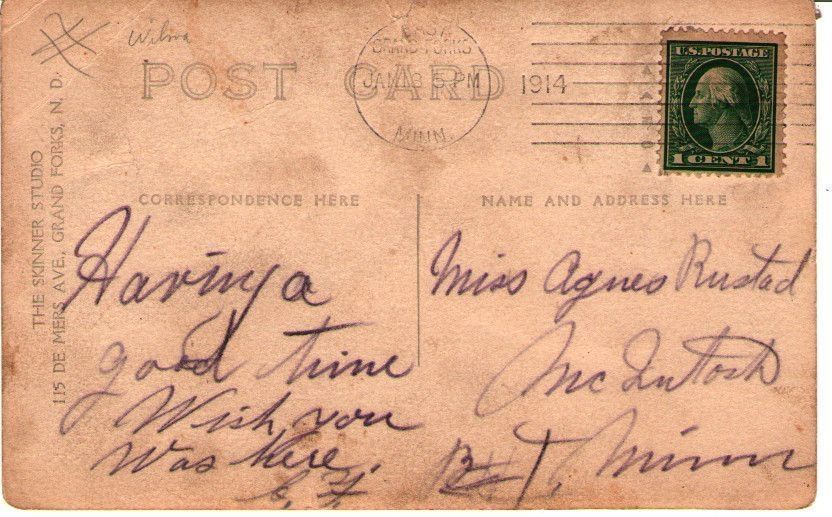 Wilma
POST CARD
EAST
GRAND FORKS
JAN 3 5 PM
MINN.
1914
U.S. POSTAGE
1 CENT 1
THE SKINNER STUDIO
115 DE MERS AVE., GRAND FORKS, N. D.
CORRESPONDENCE HERE
NAME AND ADDRESS HERE
Having a
good time
Wish you
was here.
Miss Agnes Rustad
Mc Intosh
Minn